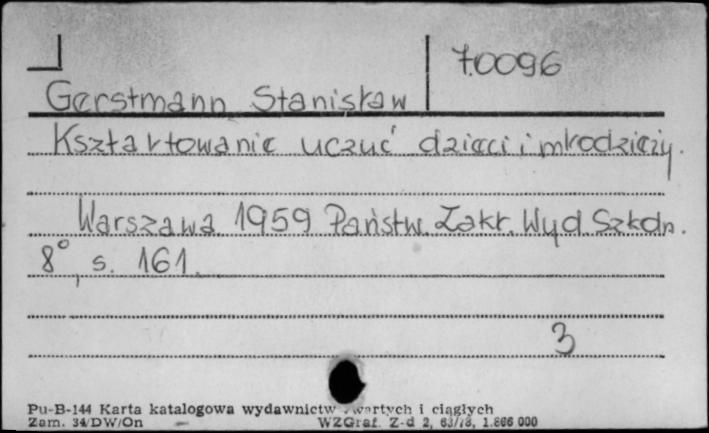 70096
Gerstmann Stanisław
Kształtowanie uczuć dzieci i młodzieży.
Warszawa 1959 Państw. Zakł. Wyd. Szkoln.
8°, s. 161.
3
Pu-B-144 Karta katalogowa wydawnictw zwartych i ciągłych
Zam. 34/DW/On WZGraf. Z-d 2, 63/78, 1.866 000